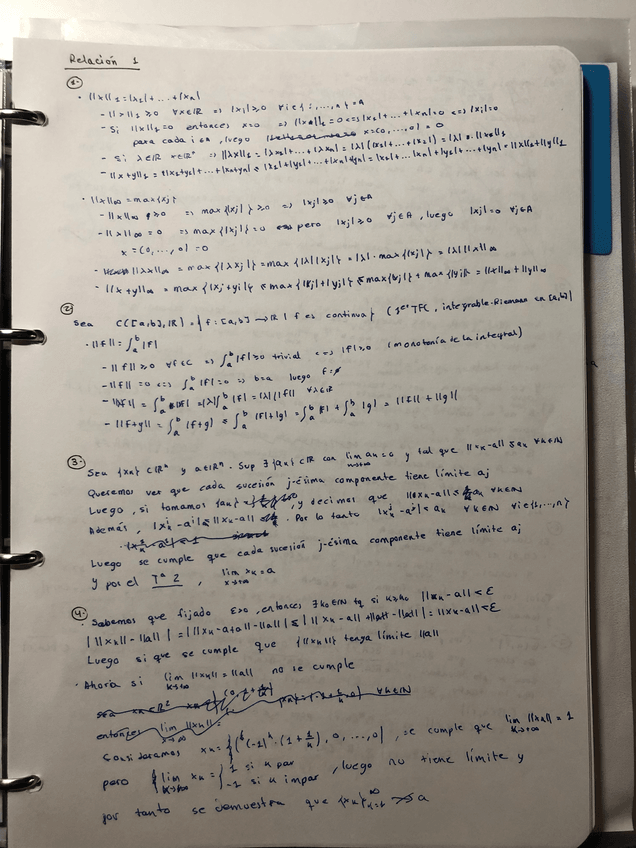 Relación 1
1.
· ||x||₁ = |x₁| + ... + |xₙ|
- ||x||₁ ≥ 0 ∀x∈ℝ => |xⱼ| ≥ 0 ∀i∈{1,...,n} = A
- Si ||x||₁ = 0 entonces x=0 => ||x||₁ = 0 <=> |x₁| + ... + |xₙ| = 0 <=> |xⱼ| = 0
para cada i∈A, luego x=(0,...,0) = 0
- Si λ∈ℝ x∈ℝⁿ => ||λx||₁ = |λx₁| + ... + |λxₙ| = |λ| (|x₁| + ... + |xₙ|) = |λ| · ||x||₁
- ||x+y||₁ = |x₁+y₁| + ... + |xₙ+yₙ| ≤ |x₁| + |y₁| + ... + |xₙ| + |yₙ| = |x₁| + ... |xₙ| + |y₁| + ... + |yₙ| = ||x||₁ + ||y||₁
· ||x||∞ = max{|xⱼ|}
- ||x||∞ ≥ 0 => max{|xⱼ|} ≥ 0 => |xⱼ| ≥ 0 ∀j∈A
- ||x||∞ = 0 => max{|xⱼ|} = 0 pero |xⱼ| ≥ 0 ∀j∈A, luego |xⱼ| = 0 ∀j∈A
x = (0,...,0) = 0
- ||λx||∞ = max{|λxⱼ|} = max{|λ||xⱼ|} = |λ| · max{|xⱼ|} = |λ| ||x||∞
- ||x+y||∞ = max{|xⱼ+yⱼ|} ≤ max{|xⱼ|+|yⱼ|} ≤ max{|xⱼ|} + max{|yⱼ|} = ||x||∞ + ||y||∞
2.
Sea C([a,b],ℝ) = {f: [a,b] → ℝ | f es continua} (TFC, integrable-Riemann en [a,b])
· ||f|| = ∫ₐᵇ |f|
- ||f|| ≥ 0 ∀f∈C => ∫ₐᵇ |f| ≥ 0 trivial <=> |f| ≥ 0 (monotonía de la integral)
- ||f|| = 0 <=> ∫ₐᵇ |f| = 0 => b=a luego f=
- ||λf|| = ∫ₐᵇ |λf| = |λ| ∫ₐᵇ |f| = |λ| ||f|| ∀λ∈ℝ
- ||f+g|| = ∫ₐᵇ |f+g| ≤ ∫ₐᵇ |f|+|g| = ∫ₐᵇ |f| + ∫ₐᵇ |g| = ||f|| + ||g||
3. Sea {xₖ} ⊂ ℝⁿ y a∈ℝⁿ. Sup ∃{aₖ} ⊂ ℝ con lim aₖ = 0 y tal que ||xₖ-a|| ≤ aₖ ∀k∈ℕ
Queremos ver que cada sucesión j-ésima componente tiene límite aⱼ
Luego, si tomamos {aₖ}, y decimos que ||xₖ-a|| ≤ aₖ ∀k∈ℕ
Además, |xₖʲ - aʲ| ≤ ||xₖ-a||. Por lo tanto |xₖʲ - aʲ| ≤ aₖ ∀k∈ℕ ∀i∈{1,...,n}
Luego se cumple que cada sucesión j-ésima componente tiene límite aⱼ
Y por el Tª 2, lim xₖ = a
4. · Sabemos que fijado ε>0, entonces ∃k₀∈ℕ tq si k≥k₀ ||xₖ-a|| < ε
| ||xₖ|| - ||a|| | = | ||xₖ-a+a|| - ||a|| | ≤ | ||xₖ-a|| + ||a|| - ||a|| | = ||xₖ-a|| < ε
Luego si que se cumple que {||xₖ||} tenga límite ||a||
· Ahora si lim ||xₖ|| = ||a|| no se cumple
Consideramos xₖ = {((-1)ᵏ · (1+1/k), 0, ..., 0)}, se cumple que lim ||xₖ|| = 1
pero { lim xₖ = { 1 si k par
-1 si k impar, luego no tiene límite y
por tanto se demuestra que {xₖ} ↛ a